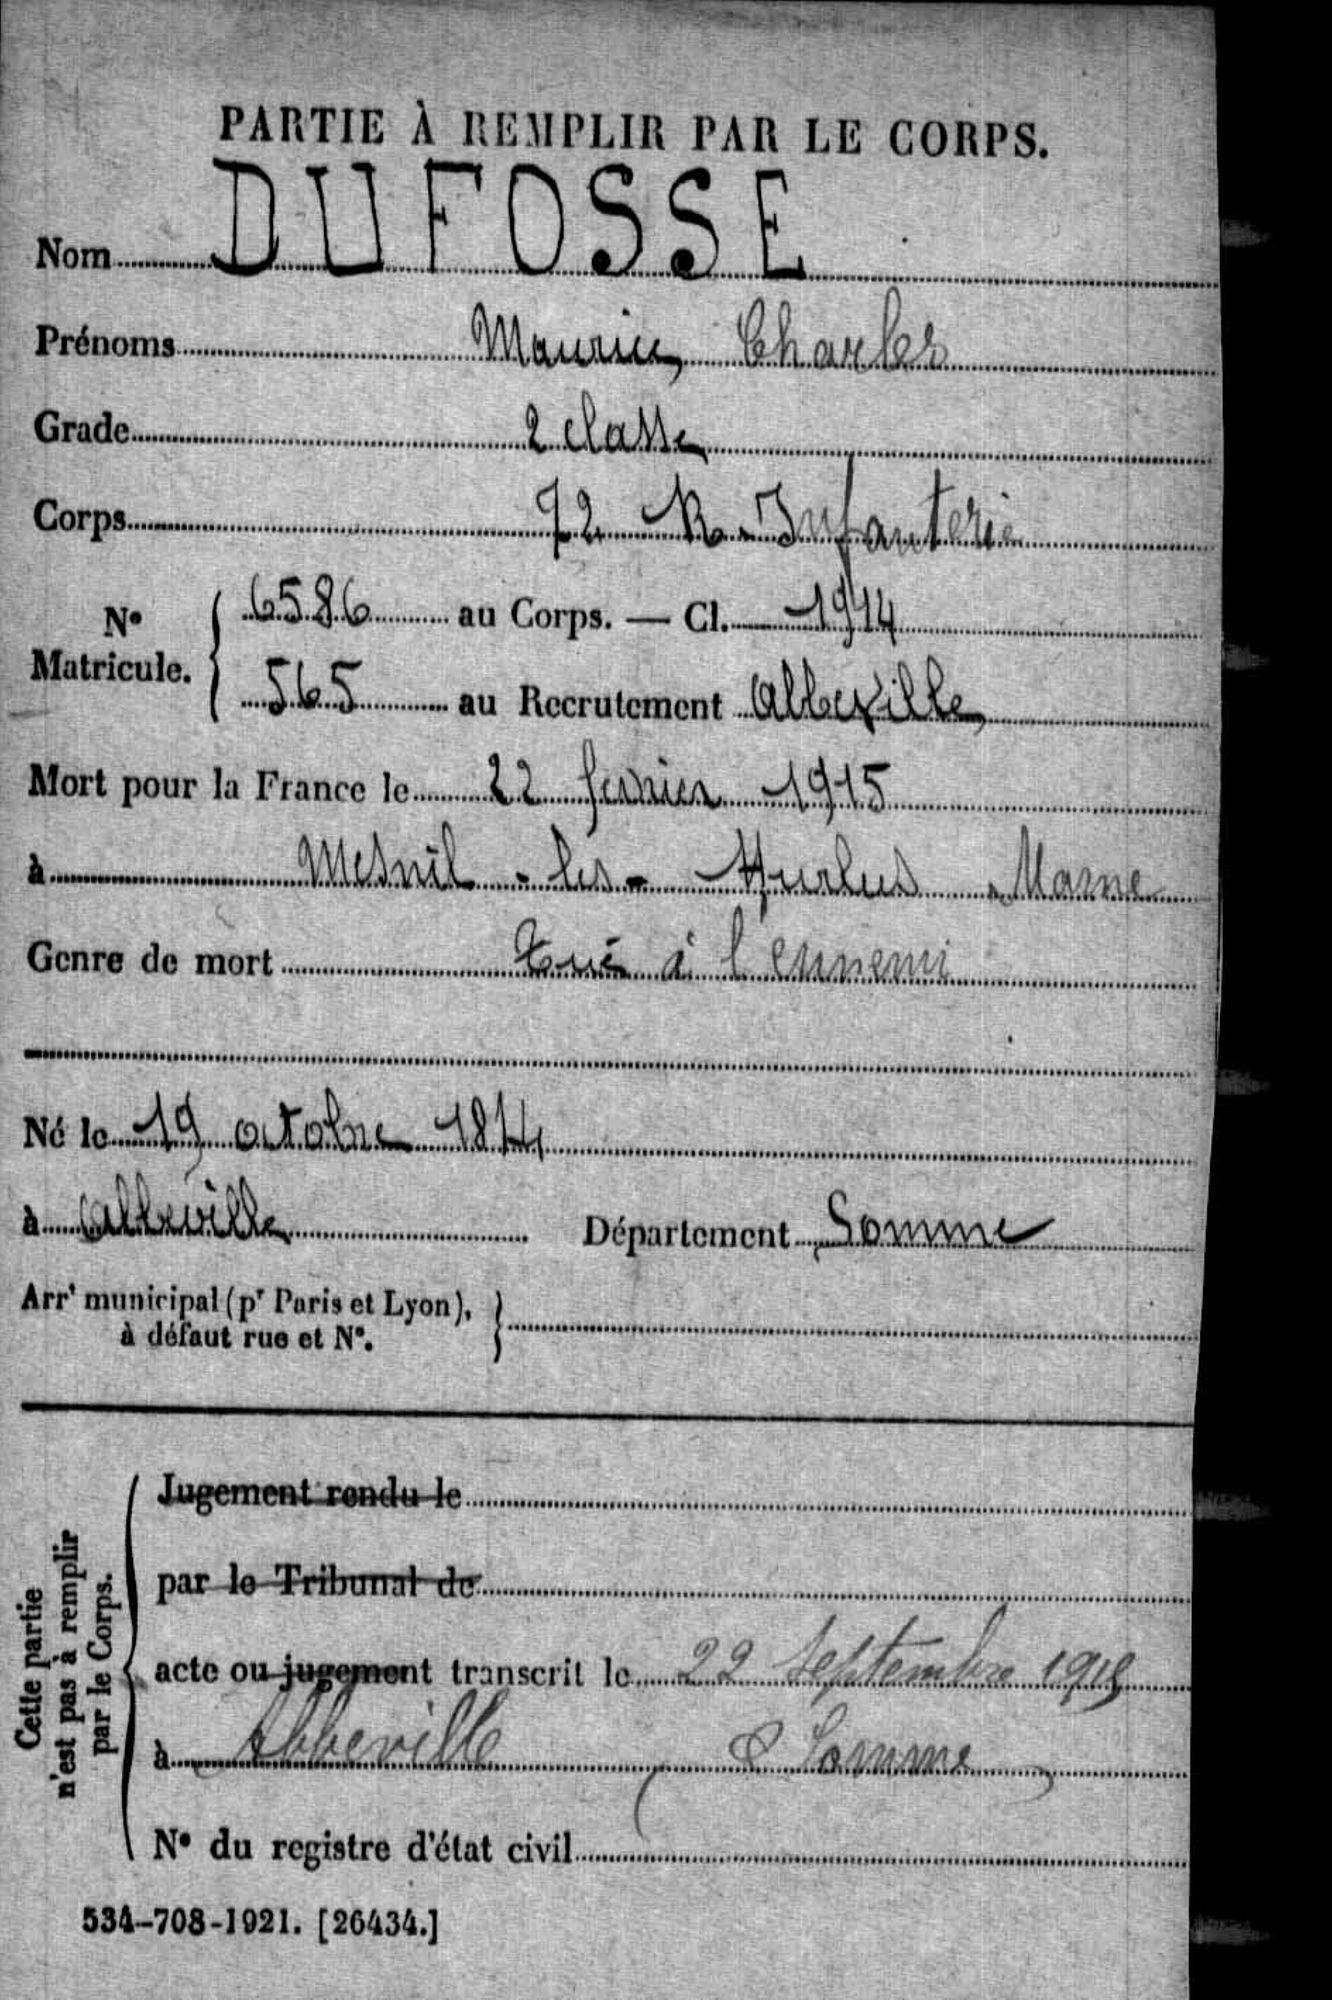 PARTIE À REMPLIR PAR LE CORPS.
Nom DUFOSSE
Prénoms Maurice Charles
Grade 2 classe
Corps 72 R. Infanterie
N° Matricule. 6586 au Corps. — Cl. 1914
565 au Recrutement Abbeville
Mort pour la France le 22 fevrier 1915
à Mesnil - les - Hurlus Marne
Genre de mort tué à l'ennemi
Né le 19 octobre
à Abbeville Département Somme
Arrt municipal (pr Paris et Lyon),
à défaut rue et N°.
Cette partie
n'est pas à remplir
par le Corps.
Jugement rendu le
par le Tribunal de
acte ou jugement transcrit le 22 Septembre
à Abbeville Somme
N° du registre d'état civil
534-708-1921. [26434.]